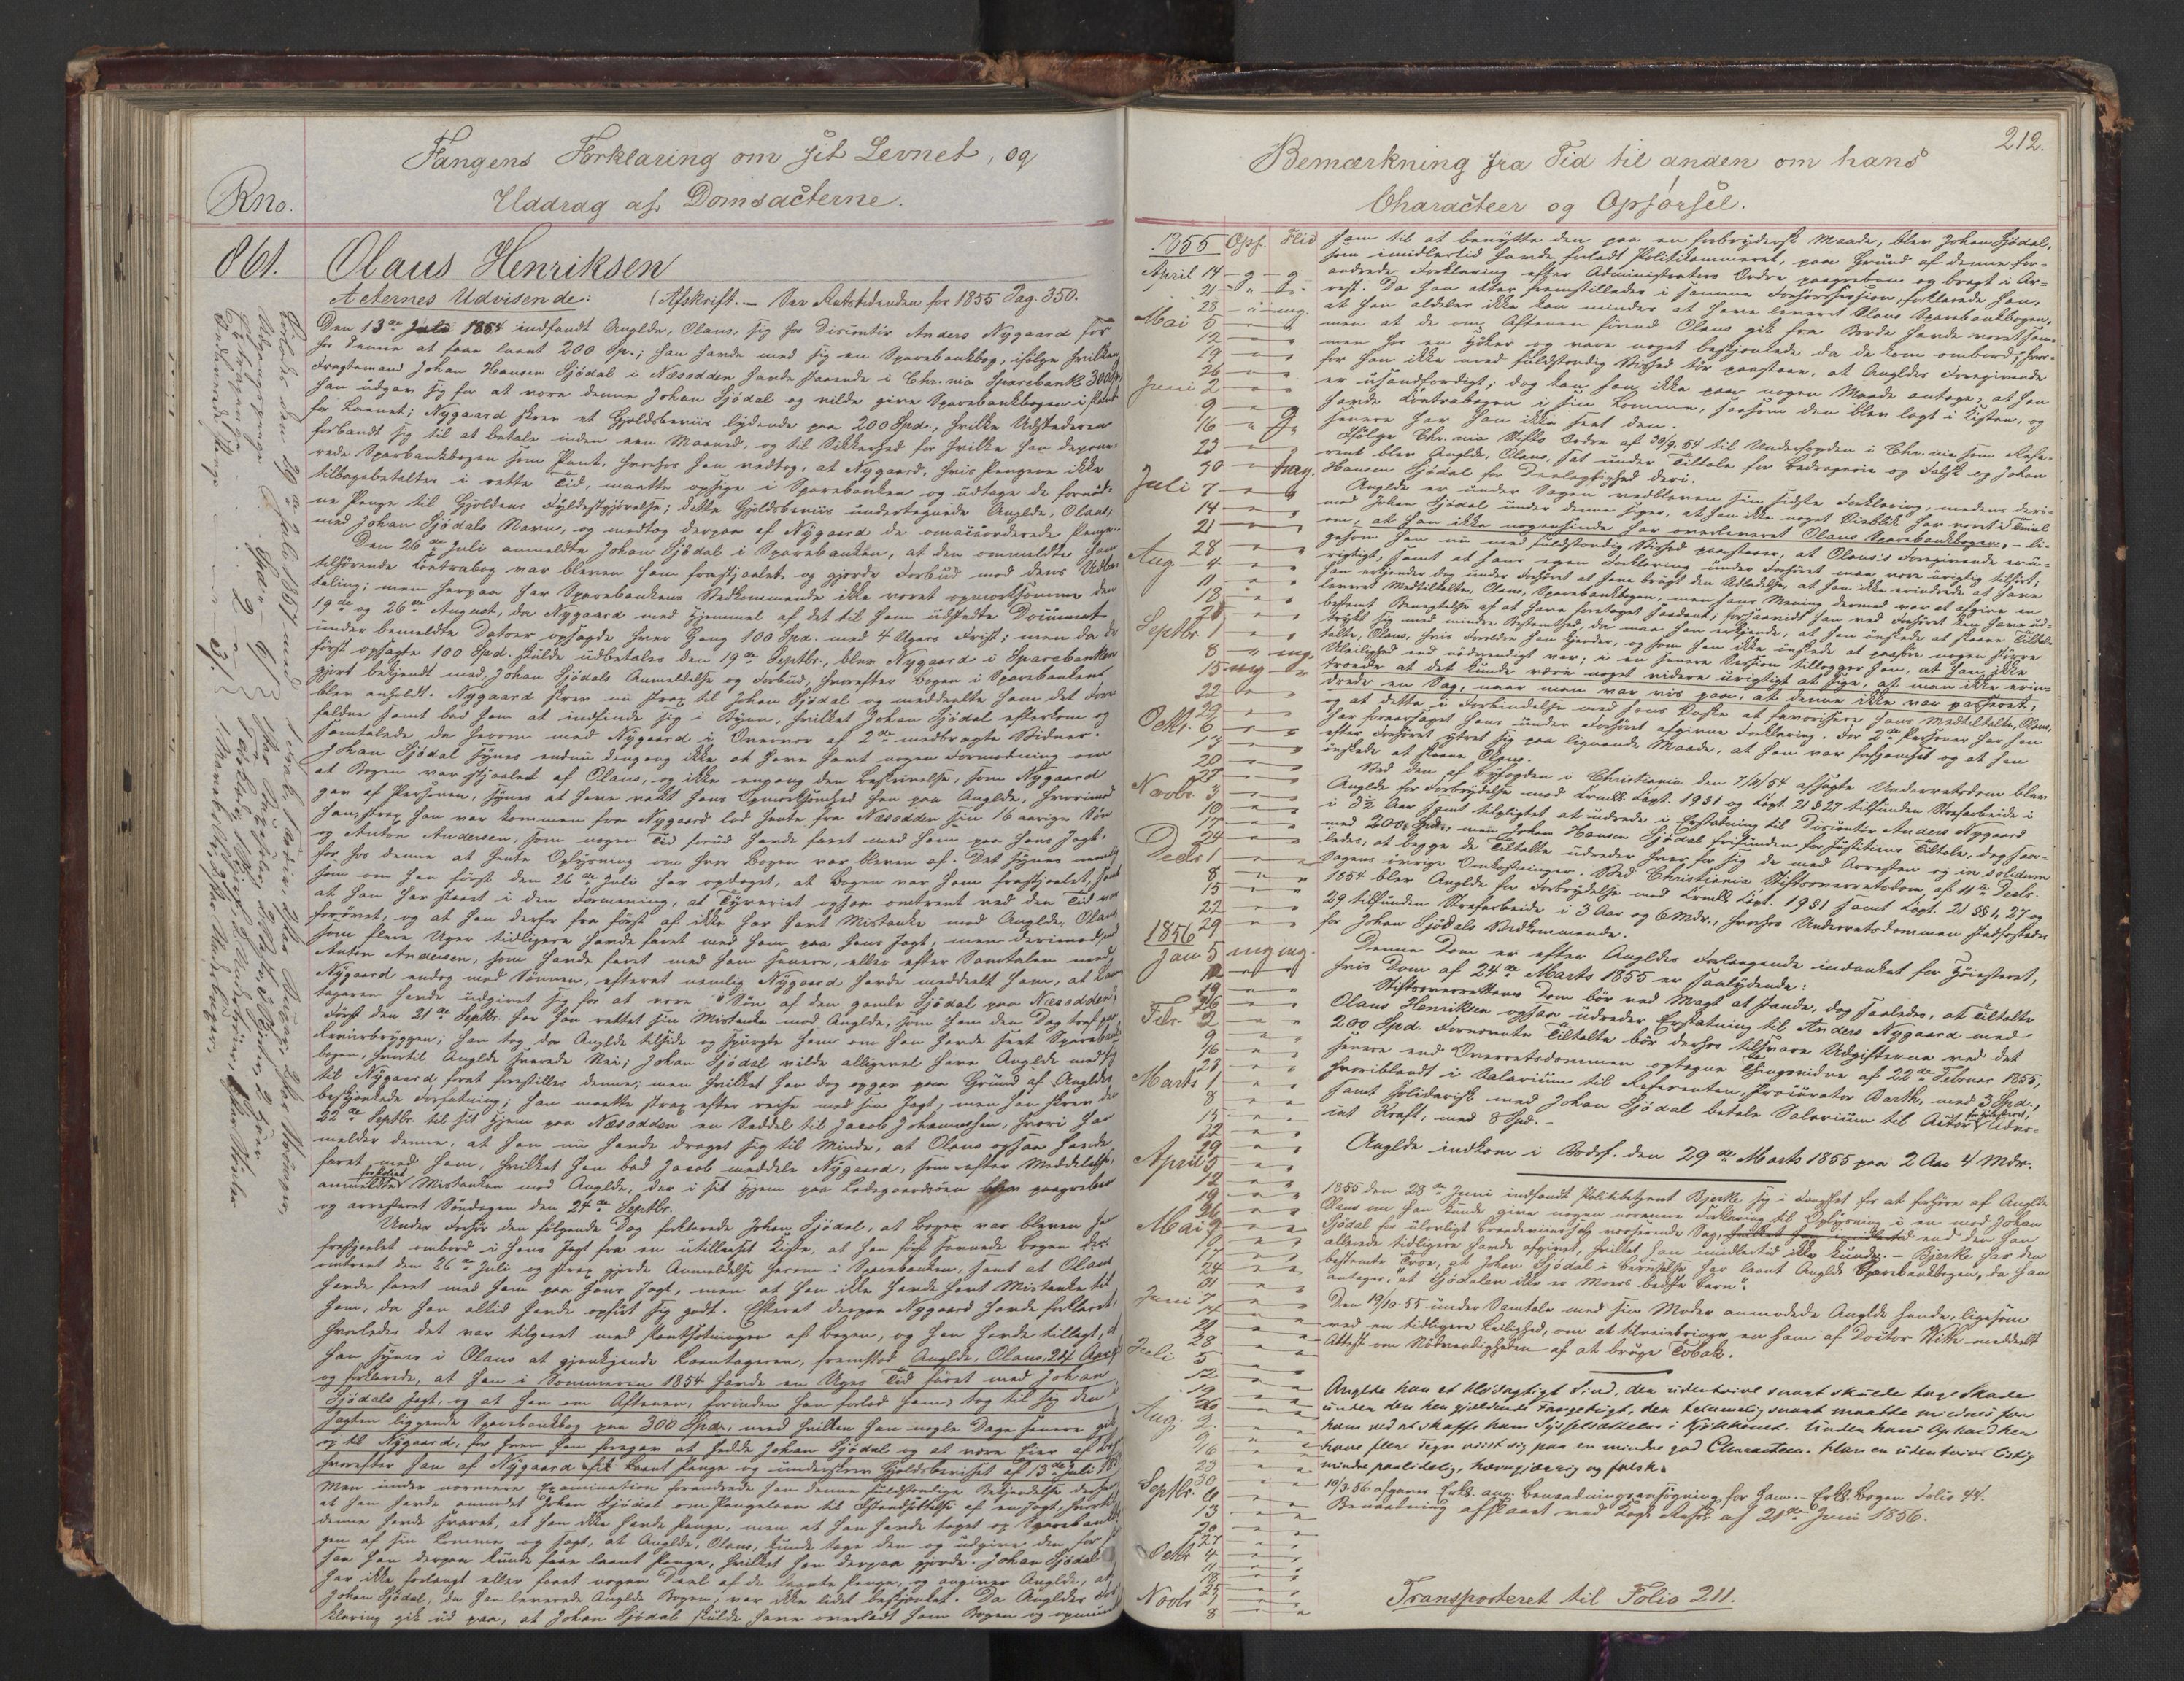 Fangens Forklaring om sit Levnet, og
Uddrag af Domsacterne.
Rno.
861. Olaus Henriksen
Acternes Udvisende: (Afskrift. — See Retstidenden for 1855 Pag. 350.
Den 13de Juli 1854 indfandt Anglde, Olaus, sig hos Procurator Anders Nygaard for
hos denne at faae laant 200 Sp.; han havde med sig en Sparebankbog, ifølge hvilken
Fragtemand Johan Hansen Sjødal i Næsodden havde staaende i Chr.nia Sparebank 300 Spd
han udgav sig for at være denne Johan Sjødal og vilde give Sparebankbogen i Pant
for Laanet; Nygaard skrev et Gjeldsbeviis lydende paa 200 Spd., hvilke Udstederen
forbandt sig til at betale inden een Maaned, og til Sikkerhed for hvilke han depone-
rede Sparbankbogen som Pant, hvorhos han vedtog, at Nygaard, hvis Pengene ikke
tilbagebetaltes i rette Tid, maatte opsige i Sparebanken og udtage de fornød-
ne Penge til Gjeldens Fyldestgjørelse; dette Gjeldsbeviis undertegnede Anglde, Olaus,
med Johan Sjødals Navn, og modtog derpaa af Nygaard de omqvæsterede Penge.
Den 26de Juli anmeldte Johan Sjødal i Sparebanken, at den ommeldte ham
tilhørende Contrabog var bleven ham frastjaalet og gjorde Forbud mod dens Udbe-
taling; men herpaa har Sparebankens Vedkommende ikke været opmærksomme den
19de og 26de August, da Nygaard med Hjemmel af det til ham udstedte Document
under bemeldte Datoer opsagde hver Gang 100 Spd. med 4 Ugers Frist; men da de
først opsagte 100 Spd. skulde udbetales den 19de Septbr., blev Nygaard i Sparebanken
gjort bekjendt med Johan Sjødals Anmeldelse og Forbud, hvorefter Bogen i Sparebanken
blev anholdt. Nygaard skrev nu strax til Johan Sjødal og meddeelte ham det Fore-
faldne samt bad ham at indfinde sig i Byen, hvilket Johan Sjødal efterkom og
samtalede da herom med Nygaard i Overvær af 2de medbragte Vidner.
Johan Sjødal synes endnu dengang ikke at have havt nogen Formodning om
at Bogen var stjaalet af Olaus, og ikke engang den Beskrivelse, som Nygaard
gav af Personen, synes at have vakt hans Opmærksomhed hen paa Anglde, hvorimod
han strax han var kommen fra Nygaard lod hente fra Næsodden sin 16 aarige Søn
og Anton Andersen, som nogen Tid forud havde faret med ham paa hans Jagt,
for hos denne at hente Oplysning om hvor Bogen var bleven af. Det synes nemlig
som om han først den 26de Juli har opdaget, at Bogen var ham frastjaalet, samt
at han har staaet i den Formening, at Tyveriet ogsaa omtrent ved den Tid var
forøvet, og at han derfor fra først af ikke har havt Mistanke mod Anglde, Olaus,
som flere Uger tidligere havde faret med ham paa hans Jagt, men derimod mod
Anton Andersen, som havde faret med ham senere, eller efter Samtalen med
Nygaard endog mod Sønnen, efterat nemlig Nygaard havde meddeelt ham, at Laan-
tageren havde udgivet sig for at være "Søn af den gamle Sjødal paa Næsodden".
Først den 21de Septbr. har han rettet sin Mistanke mod Anglde, som han den Dag traf paa
Revierbryggen; han tog da Anglde tilside og spurgte ham om han havde seet Sparebank-
bogen, hvortil Anglde svarede Nei; Johan Sjødal vilde alligevel have Anglde med sig
til Nygaard forat forestilles denne; men hvilket han dog opgav paa Grund af Angldes
beskjænkede Forfatning; han maatte strax efter reise med sin Jagt, men han skrev den
22de Septbr. til sit Hjem paa Næsodden en Seddel til Jacob Johannesen, hvori han
melder denne, at han nu havde draget sig til Minde, at Olaus ogsaa havde
faret med ham, hvilket han bad Jacob meddele Nygaard, som efter Meddelelse
anmeldte Mistanken mod Anglde, der i sit Hjem paa Ladegaardsøen blev paagreben
og arresteret Søndagen den 24de Septbr.
Under Forhør den følgende Dag forklarede Johan Sjødal, at Bogen var bleven ham
frastjaalet ombord i hans Jagt fra en utillaaset Kiste, at han først savnede Bogen der
omtrent den 26de Juli og strax gjorde Anmeldelse herom i Sparebanken, samt at Olaus
havde faret med ham paa hans Jagt, men at han ikke havde havt Mistanke til
ham, da han altid havde opført sig godt. Efterat derpaa Nygaard havde forklaret,
hvorledes det var tilgaaet med Pantsætningen af Bogen, og han havde tillagt, at
han synes i Olaus at gjenkjende Laantageren, fremstod Anglde, Olaus, 24 Aar gl.
og forklarede, at han i Sommeren 1854 havde en Uges Tid faret med Johan
Sjødals Jagt, og at han om Aftenen, forinden han forlod ham, tog til sig den i
Jagten liggende Sparebankbog paa 300 Spd., med hvilken han nogle Dage senere gik
op til Nygaard, for hvem han foregav at hedde Johan Sjødal og at være Eier af Bogen
hvorefter han af Nygaard fik laant Penge og underskrev Gjeldsbeviset af 13de Juli 1854
Men under nærmere Examination forandrede han denne fuldstændige Tilstaaelse derhen
at han havde anmodet Johan Sjødal om Pengelaan til Istandsættelse af en Jagt, hvortil
denne havde svaret, at han ikke havde Penge, men at han havde taget op Sparebankbo-
gen af sin Lomme og sagt, at Anglde, Olaus, kunde tage den og udgive den for sin
saa han derpaa kunde faae laant Penge, hvilket han derpaa gjorde. Johan Sjødal
har ikke forlangt eller faaet nogen Deel af de laante Penge, og angiver Anglde, at
Johan Sjødal, da han leverede Anglde Bogen, var ikke lidet beskjænket. Da Angldes For-
klaring gik ud paa, at Johan Sjødal skulde have overladt ham Bogen og opmun-
Bemærkning fra Tid til anden om hans
Characteer og Opførsel.
212.
1855 Opf. Flid
April 14 g g
21
28 mg.
Mai 5
12
19
26
Juni 2
9
16
23
30 mg.
Juli 7
14
21
28
Aug 4
11
18
Septbr. 1
8 mg.
15 mg
22
29
Octbr. 6
13
20
27
Novbr. 3
10
17
24
Decbr 1
8
15
22
29
1856
Jan 5 mg mg.
12
19
26
Febr. 2
9
16
23
Marts 1
8
15
22
29
April 5
12
19
26
Mai
10
17
24
31
Juni 7
14
21
28
Juli 5
12
19
26
Aug. 2
9
16
23
30
Septbr. 6
13
20
27
Octbr 4
11
18
25
Novbr 1
8
ham til at benytte den paa en forbrydersk Maade, blev Johan Sjødal,
som imidlertid havde forladt Politikammeret, paa Grund af denne for-
andrede Forklaring efter Administrators Ordre paagreben og bragt i Ar-
rest. Da han atter fremstilledes i samme Forhørssession, forklarede han,
at han aldeles ikke kan mindes at have leveret Olaus Sparebankbogen,
men at de om Aftenen førend Olaus gik fra Borde havde været sam-
men hos en Høker og vare noget beskjænkede da de kom ombord, hvor-
for han ikke med fuldstændig Vished tør paastaae, at Angldes Foregivende
er usandfærdigt; dog kan han ikke paa nogen Maade antage, at han
havde Contrabogen i sin Lomme, saasom den blev lagt i Kisten, og
senere har han ikke seet den.
Ifølge Chr.nia Stifts Ordre af 30/9. 54 til Underfogden i Chr.nia som Refe-
rent blev Anglde, Olaus, sat under Tiltale for Bedragerie og Falsk og Johan
Hansen Sjødal for Deelagtighed deri.
Anglde er under Sagen vedbleven sin sidste Forklaring, medens deri-
mod Johan Sjødal under denne siger, at han ikke noget Øieblik har været i Tvivl
om, at han ikke nogensinde har overleveret Olaus Sparebankbogen, — li-
gesom han nu med fuldstændig Vished paastaaer, at Olaus's Foregivende er u-
rigtigt, samt at hans egen Forklaring under Forhøret maa være urigtig tilført;
han erkjender dog under Forhøret at have brugt den Udladelse, at han ikke erindrede at have
leveret Medtiltalte, Olaus, Sparebankbogen, men hans Mening dermed var at afgive en
bestemt Benegtelse af at have foretaget Saadant; forsaavidt han ved Forhøret kan have ud-
trykt sig med mindre Bestemthed, da maa han erkjende, at han ønskede at skaane Tiltal-
talte, Olaus, hvis Forældre han kjender, og som han ikke ønskede at paaføre nogen større
Uleilighed end nødvendigt var; i en senere Session tillægger han, at han ikke
troede at det kunde være noget videre urigtigt at sige, at man ikke erin-
drede en Sag, naar man var vis paa, at denne ikke var passeret;
og at dette i Forbindelse med hans Ønske at favorisere hans Medtiltalte, Olaus,
har foraarsaget hans under Forhøret afgivne Forklaring. For 2de Personer har han
efter Forhøret ytret sig paa lignende Maade, at han var forhjemset og at han
ønskede at skaane Olaus.
Ved den af Byfogden i Christiania den 7/11/54 afsagte Underretsdom blev
Anglde for Forbrydelse mod Crml. Lov Capt. 19 § 1 og Capt. 21 § 27 tilfunden Strafarbeide i
i 3½ Aar samt tilpligtet at udrede i Erstatning til Procurator Anders Nygaard
med 200 Spd., men Johan Hansen Sjødal frifunden for Justitiens Tiltale, dog saa-
ledes, at begge de Tiltalte udreder hver for sig de med Arresten og in solidum
Sagens øvrige Omkostninger. Ved Christiania Stiftsoverretsdom af 11te Decbr.
1854 blev Anglde for Forbrydelse mod Crmls. Capt. 19 § 1 samt Capt. 21 §§ 1, 27 og
29 tilfunden Strafarbeide i 3 Aar og 6 Mdr., hvorhos Underretsdommen stadfæstedes
for Johan Sjødals Vedkommende.
Denne Dom er efter Angldes Forlangende indanket for Høiesteret,
hvis Dom af 24de Marts 1855 er saalydende:
Stiftsoverrettens Dom bør ved Magt at stande, dog saaledes, at Tiltalte
Olaus Henriksen ogsaa udreder Erstatning til Anders Nygaard med
200 Spd. Fornævnte Tiltalte bør derhos tilsvare Udgifterne ved det
senere end Overretsdommen optagne Thingsvidne af 22de Februar 1855,
hvoriblandt i Salarium til Referenten, Procurator Barth, med 3 Spd.,
samt solidarisk med Johan Sjødal betale Salarium til Actor for Høiesteret, Advo-
cat Kraft, med 8 Spd. —
Anglde indkom i Bodsf. den 29de Marts 1855 paa 2 Aar 4. Mdr.
1855 den 28de Juni indfandt Politibetjent Bjerke sig i Fængslet for at forhøre af Anglde
Olaus om han kunde give nogen nærmere Forklaring til Oplysning i en mod Johan
Sjødal for ulovligt Brændeviinssalg verserende Sag, end den han
allerede tidligere havde afgivet, hvilket han imidlertid ikke kunde. — Bjerke har den
bestemte Troe, at Johan Sjødal i Beruselse har laant Anglde Sparebankbogen, da han
antager, "at Sjødalen ikke er Moers bedste Barn".
Den 19/10. 55 under Samtale med sin Moder anmodede Anglde hende, ligesom
ved en tidligere Leilighed, om at tilveiebringe en ham af Doctor With meddeelt
Attest om Nødvendigheden af at bruge Tobak.
Anglde han et klogagtigt Sind, der udentvivl snart skulde tage Skade
under den her gjeldende Fangetugt, der temmelig snart maatte mildnes for
ham ved at skaffe ham Sysselsættelse i Kjøkkenet. Under hans Ophold her
have flere Tegn viist sig paa en mindre god Characteer. Han er udentvivl listig
mindre paalidelig, hævngjærrig og falsk.
10/3. 56 afgaves Erkl. ang. Benaadningsansøgning for ham. — Erkl. Bogen Folio 44.
Benaadning afslaaet ved Kongl. Resol. af 21de Juni 1856.
Transporteret til Folio 211.